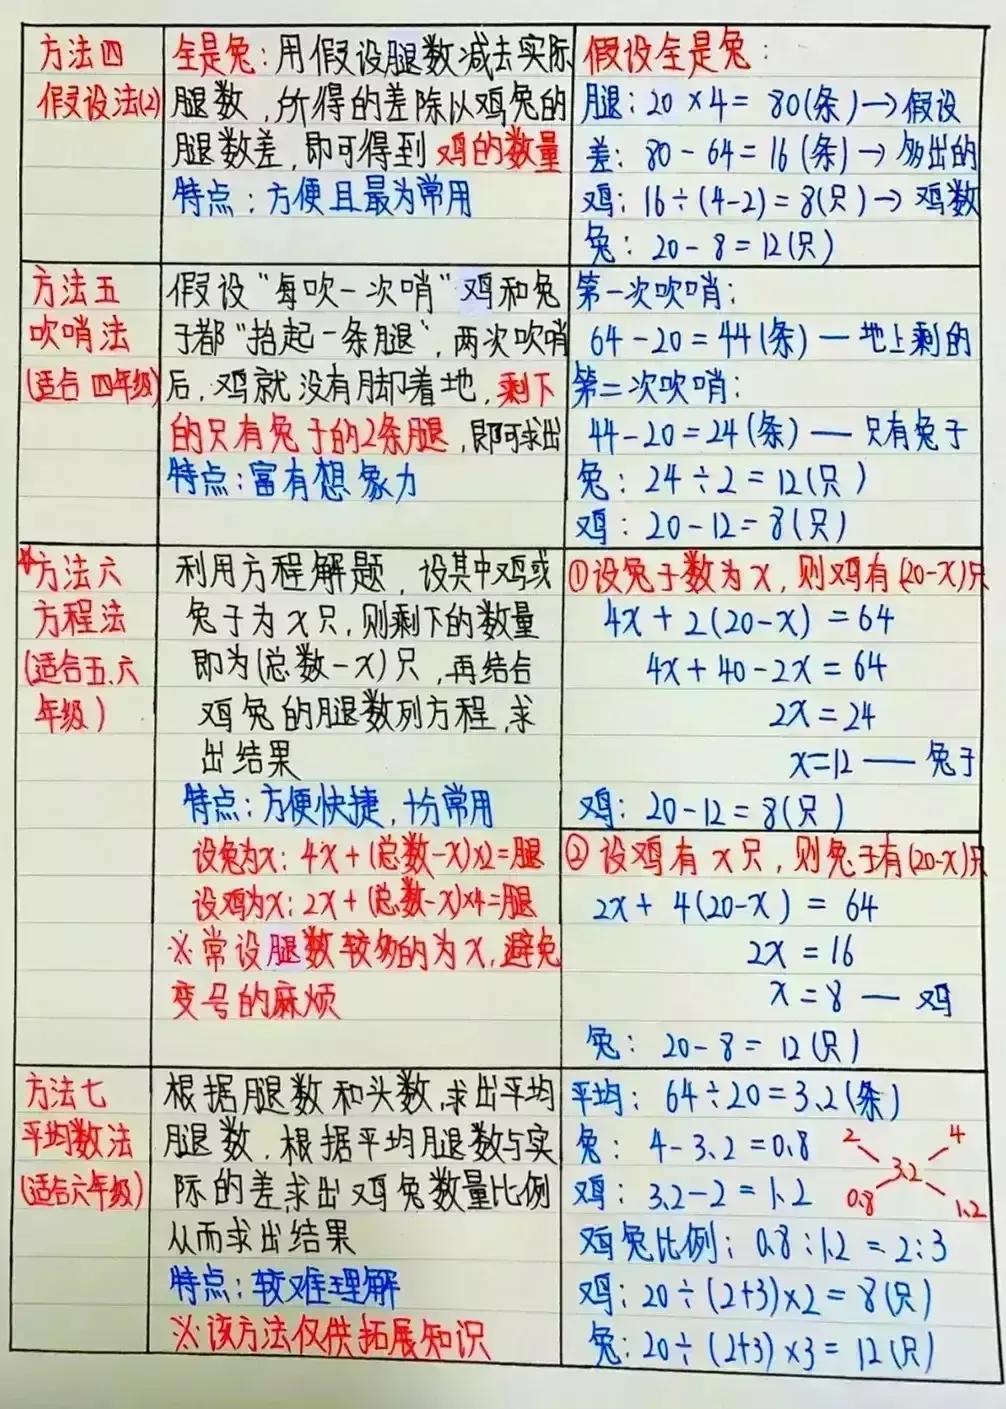 方法四
假设法(2)
全是兔：用假设腿数减去实际
腿数，所得的差除以鸡兔的
腿数差，即可得到鸡的数量
特点：方便且最为常用
假设全是兔：
腿：20×4=80(条)→假设
差：80-64=16(条)→多出的
鸡：16÷(4-2)=8(只)→鸡数
兔：20-8=12(只)
方法五
吹哨法
(适合四年级)
假设“每吹一次哨”鸡和兔
子都“抬起一条腿”，两次吹哨
后，鸡就没有脚着地，剩下
的只有兔子的2条腿，即可求出
特点：富有想象力
第一次吹哨：
64-20=44(条)—地上剩的
第二次吹哨：
44-20=24(条)—只有兔子
兔：24÷2=12(只)
鸡：20-12=8(只)
☆方法六
方程法
(适合五、六
年级)
利用方程解题，设其中鸡或
兔子为x只，则剩下的数量
即为(总数-x)只，再结合
鸡兔的腿数列方程，求
出结果
特点：方便快捷，十分常用
设兔为x：4x+(总数-x)×2=腿
设鸡为x：2x+(总数-x)×4=腿
※常设腿数较多的为x，避免
变号的麻烦
①设兔子数为x，则鸡有(20-x)只
4x+2(20-x)=64
4x+40-2x=64
2x=24
x=12—兔子
鸡：20-12=8(只)
②设鸡有x只，则兔子有(20-x)只
2x+4(20-x)=64
2x=16
x=8—鸡
兔：20-8=12(只)
方法七
平均数法
(适合六年级)
根据腿数和头数，求出平均
腿数，根据平均腿数与实
际的差，求出鸡兔数量比例
从而求出结果
特点：较难理解
※该方法仅供拓展知识
平均：64÷20=3.2(条)
兔：4-3.2=0.8
鸡：3.2-2=1.2
2 4
3.2
0.8 1.2
鸡兔比例：0.8:1.2=2:3
鸡：20÷(2+3)×2=8(只)
兔：20÷(2+3)×3=12(只)